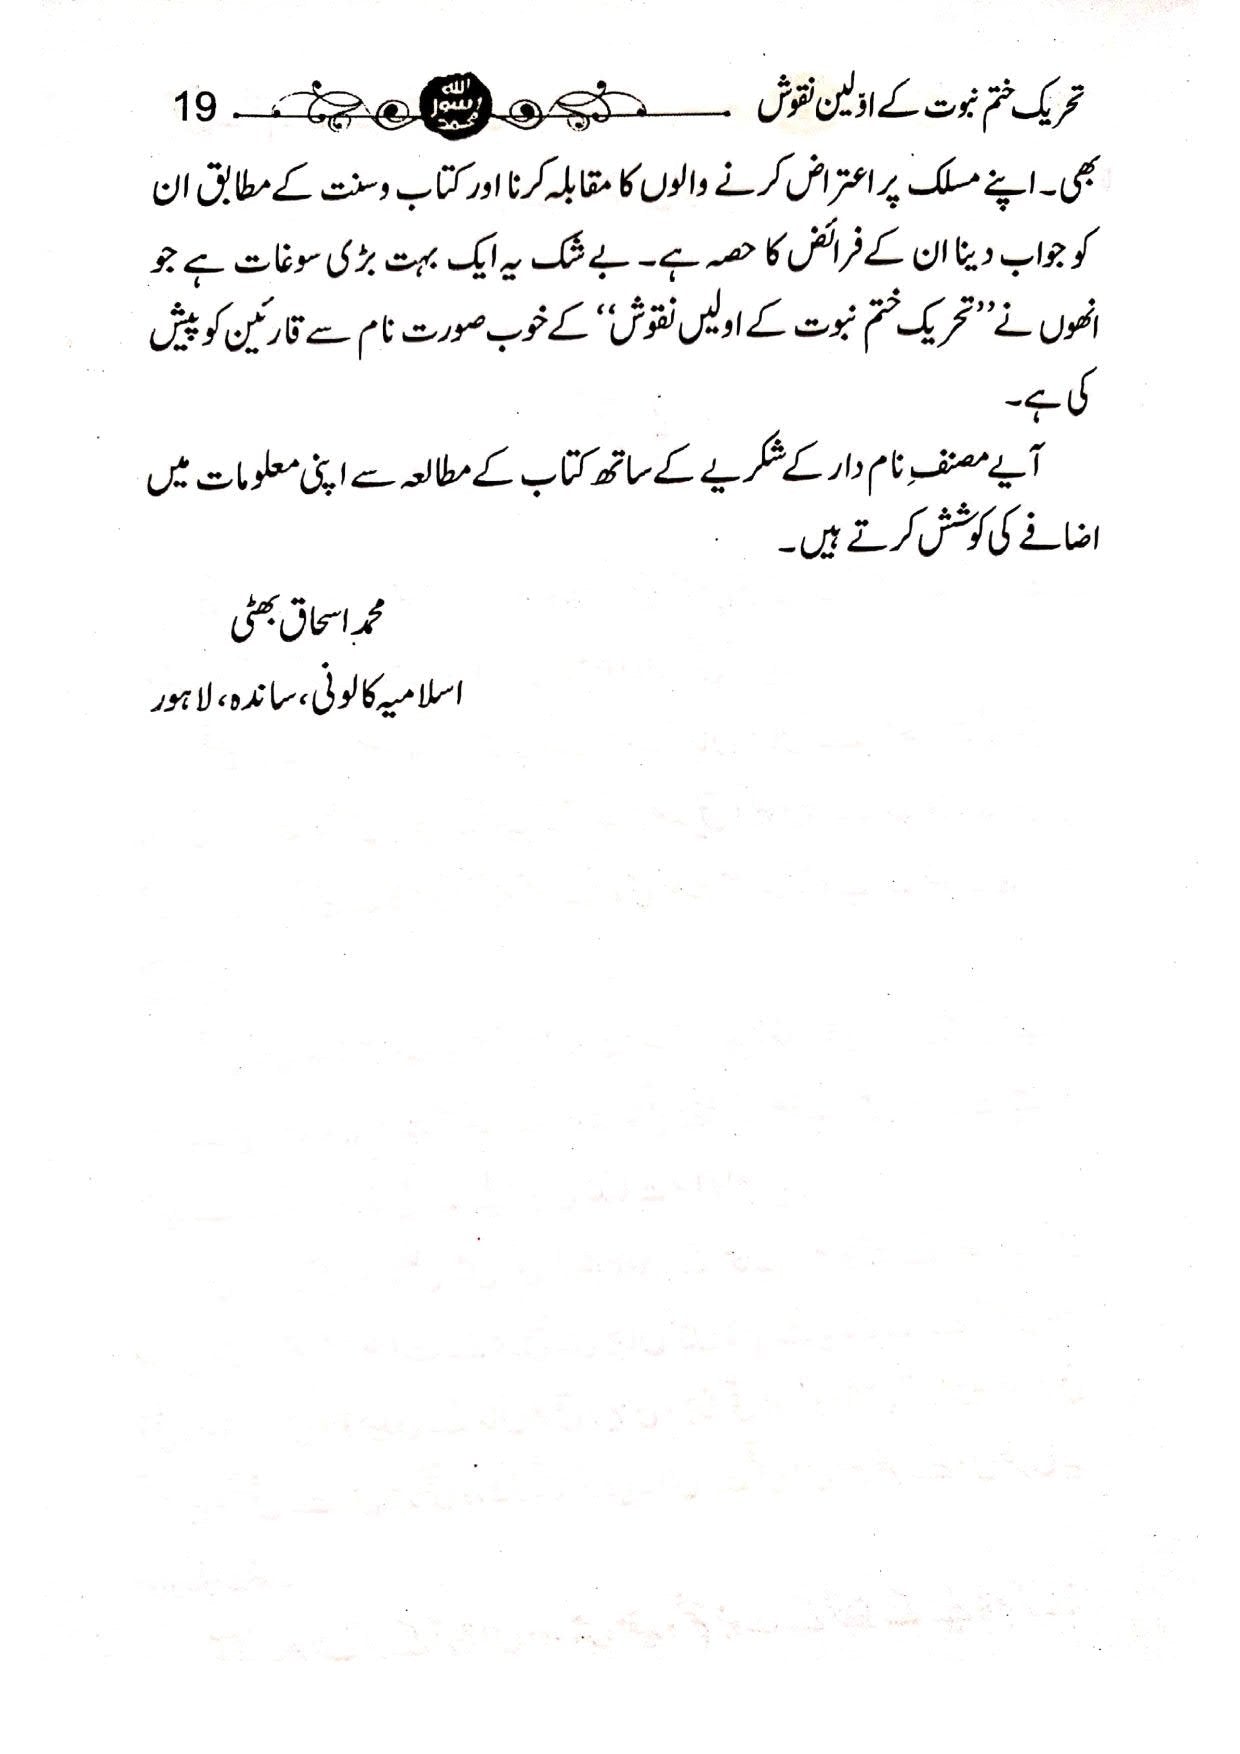 تحریک ختم نبوت کے اوّلین نقوش
الله
رسول
محمد
19
بھی۔ اپنے مسلک پر اعتراض کرنے والوں کا مقابلہ کرنا اور کتاب و سنت کے مطابق ان
کو جواب دینا ان کے فرائض کا حصہ ہے۔ بے شک یہ ایک بہت بڑی سوغات ہے جو
انھوں نے ’’تحریک ختم نبوت کے اولیں نقوش‘‘ کے خوب صورت نام سے قارئین کو پیش
کی ہے۔
آیے مصنفِ نام دار کے شکریے کے ساتھ کتاب کے مطالعہ سے اپنی معلومات میں
اضافے کی کوشش کرتے ہیں۔
محمد اسحاق بھٹی
اسلامیہ کالونی، ساندہ، لاہور